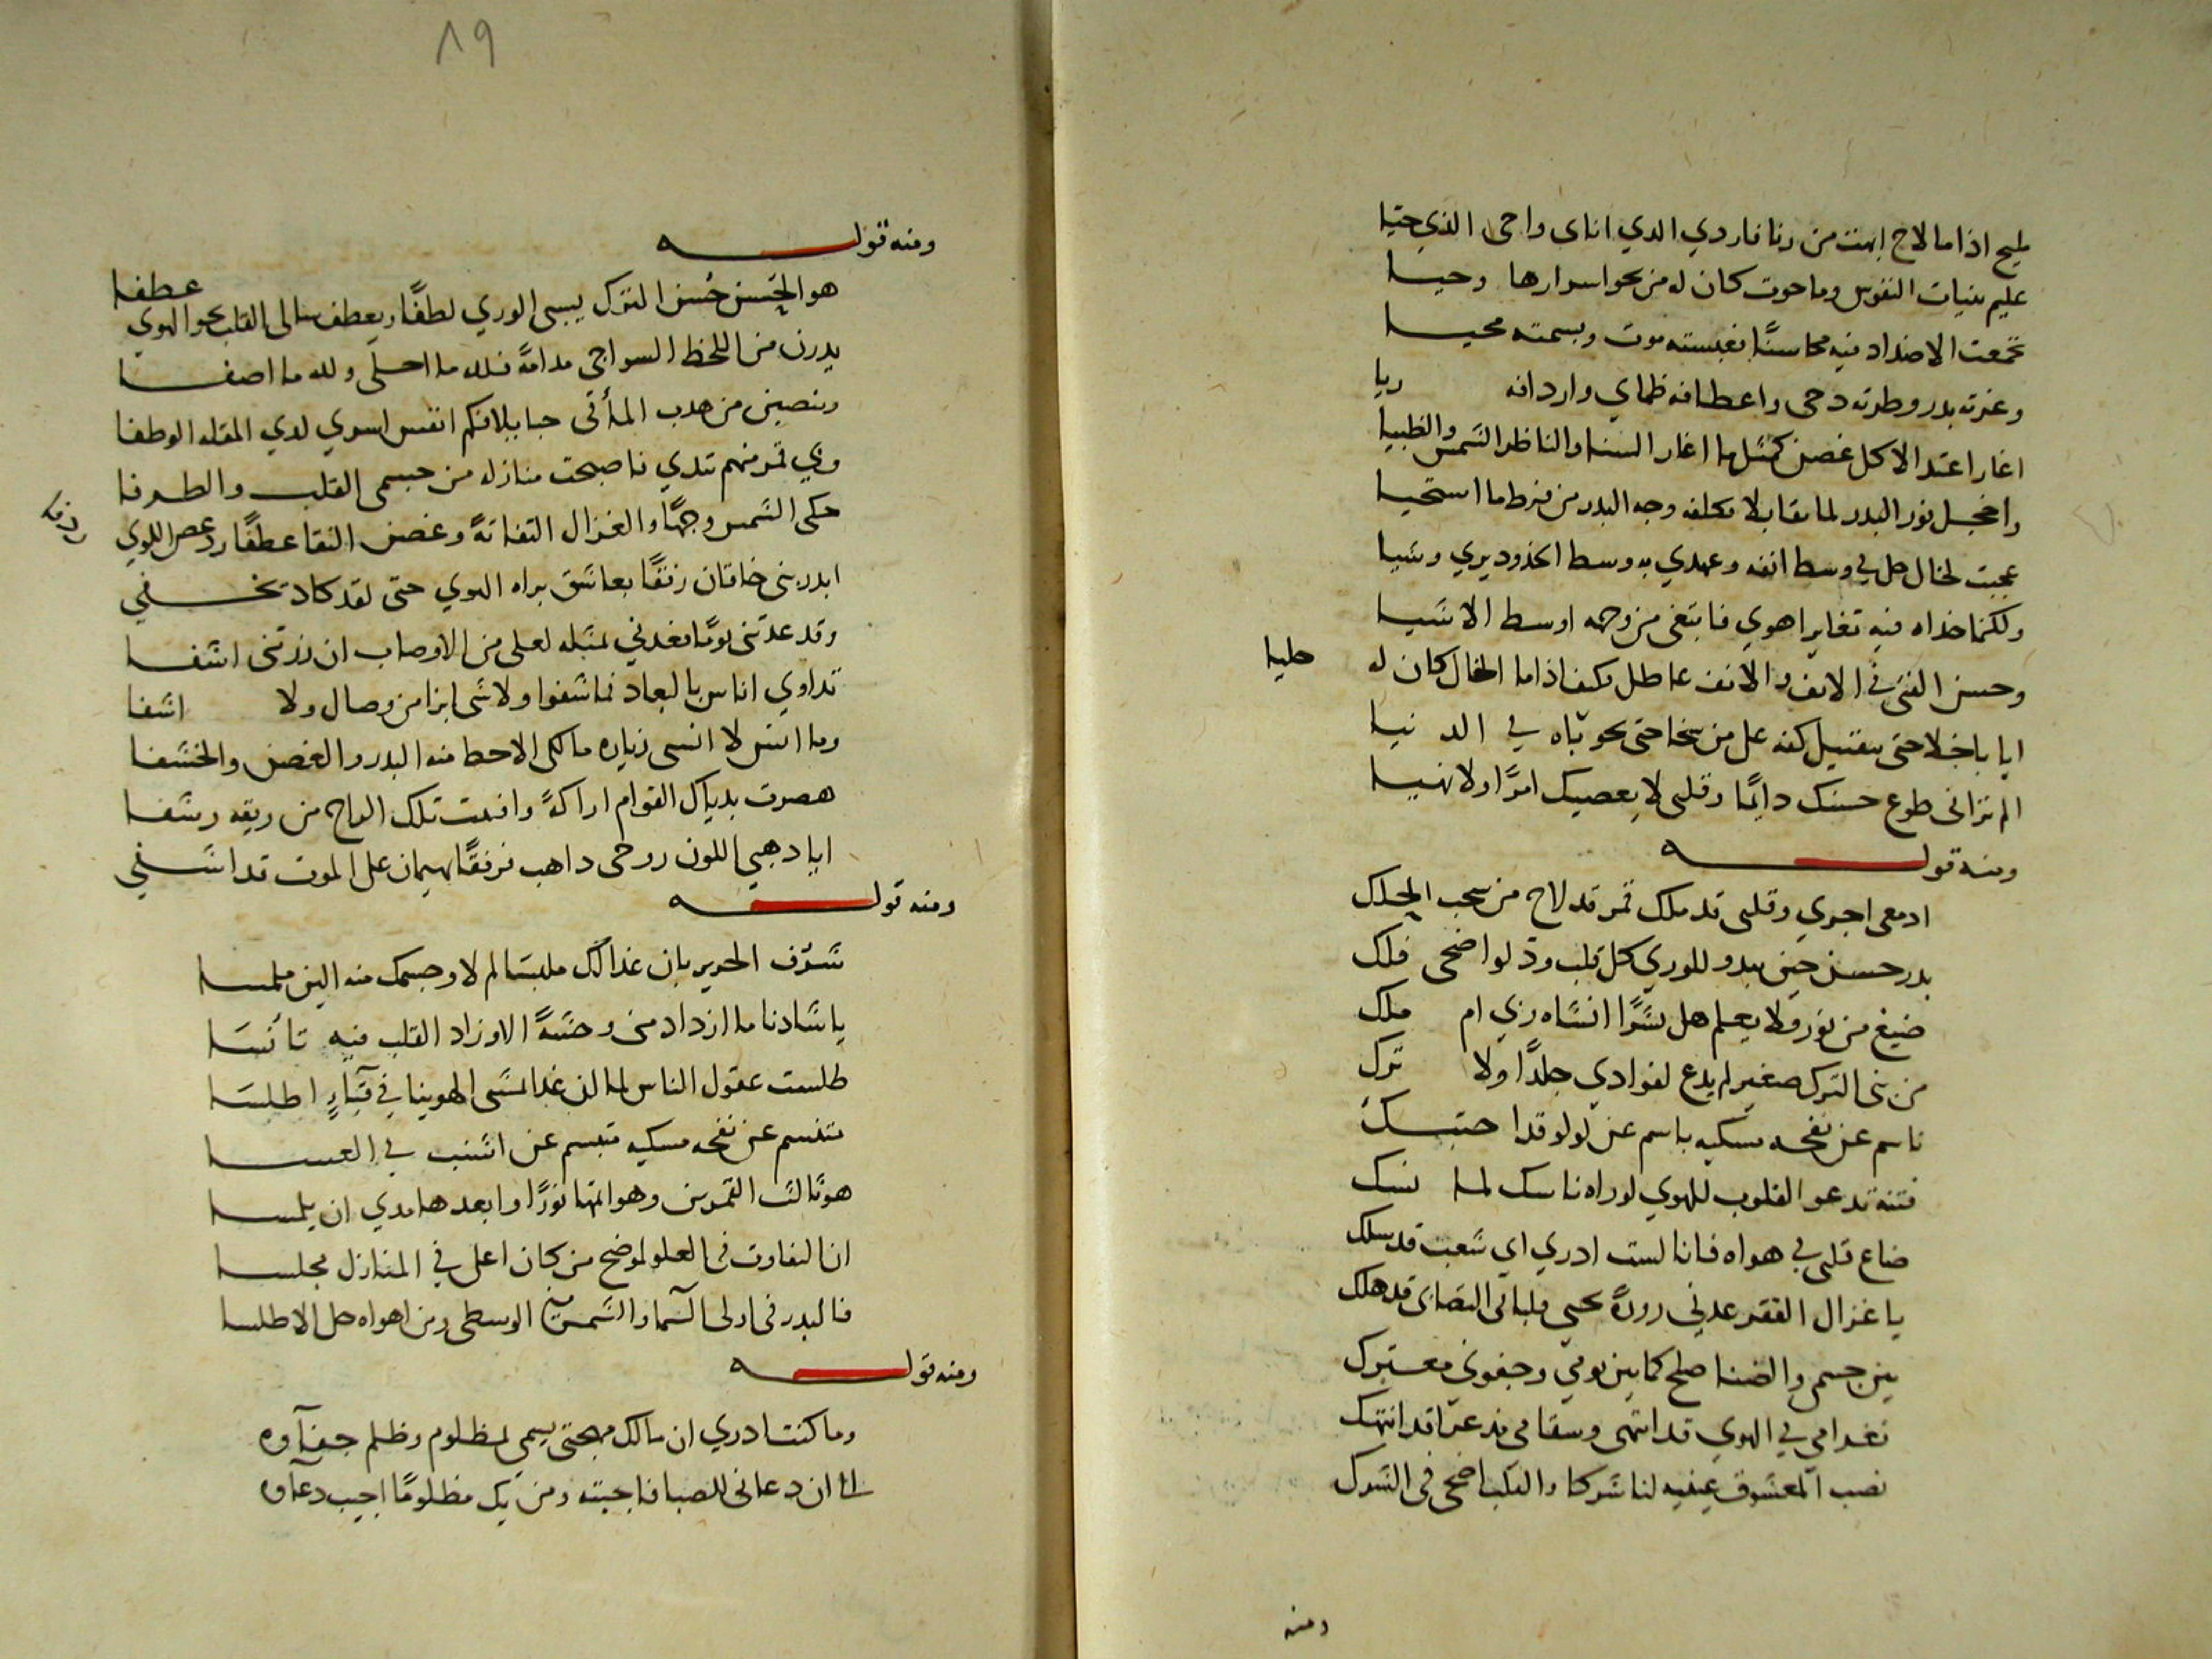 مليح اذا ما لاح ابهت من رنا فاردي الذي اناى واحى الذي حيّا
عليم بنيات النفوس وما حوت كان له من نحو اسرارها وحيا
تجمعت الاضداد فيه محاسنًا فعبسته موت وبسمته محيا
وغرته بدر وطرته دجى واعطافه ظماي واردافه ريا
اغار اعتدالا كل غصن كمثلما اغار السنا والناظر الشمس والظبيا
واخجل نور البدر لما تقابلا تكلفه وجه البدر من فرط ما استحيا
عجبت لخال حل في وسط انفه وعهدي به وسط الخدود يري وشيا
ولكنما خداه فيه تغايرا هوي فابتغى من وجهه اوسط الاشيا
وحسن الفتى في الانف والانف عاطل فكيف اذا ما الخال كان له حليا
ايا باخلا حتى بتقبيل كفه على من سخا حتى بحوباه في الدنيا
الم تراني طوع حسنك دايمًا وقلبي لا يعصيك امرًا ولا نهيا
ومنه قوله
ادمعي اجري وقلبي قد ملك قمر قد لاح من سحب الحلك
بدر حسن حين يبدو للوري كل قلب ود لو اضحى فلك
صيغ من نور ولا يعلم هل بشرًا انشاه ربي ام ملك
من بني الترك صغير لم يدع لفوادي جلدًا ولا ترك
ناسم عن نفحه مسكيه باسم عن لولو قد احتبك
فتنه تدعو القلوب للهوي لو راه ناسك لما نسك
ضاع قلبي في هواه فانا لست ادري اي شعب قد سلك
يا غزال القفر عدني زورةً تحيي قلبا في التصابي قد هلك
بين جسمي والضنا صلح كما بين نومي وجفوني معترك
فغرامي في الهوي قد انتهى وسقامي مذ عرا قد انتهك
نصب المعشوق عينيه لنا شركا والقلب اضحى في الشرك
ومنه
٨٩
ومنه قوله
هو الحسن حسن الترك يسبي الوري لطفًا ويعطف بنا لى القلب نحو الهوي عطفا
يدرن من اللحظ السواجي مدامةً فلله ما احلى ولله ما اصفا
وينصبن من هدب المأقى حبايلا فكم انفس اسري لدي المقله الوطفا
وبي قمر منهم تبدي فاصبحت منازله من جسمي القلب والطرفا
حكى الشمس وجهًا والغزال التفاتةً وغصن النقا عطفًا ودعص اللوي ردفا
ابدر بني خاقان رفقًا بعاشق براه الهوي حتى لقد كاد يخفي
وقد عدتني يومًا فعدني بمثله لعلي من الاوصاب ان زرتني اشفا
تداوي اناس بالبعاد فما شفوا ولا شى ابرا من وصال ولا اشفا
وما انس لا انسى زياره مالكي الاحظ منه البدر والغصن والخشفا
هصرت بدياك القوام اراكةً وافنيت تلك الراح من ريقه رشفا
ايا دهبي اللون روحى داهب فرفقًا بهيمان على الموت قد اشفي
ومنه قوله
شرف الحرير بان غدا لك ملبسا لم لا وجسمك منه الين ملمسا
يا شادنا ما ازداد مني وحشةً الا وزاد القلب فيه تأنسا
طلست عقول الناس لما ان غدا تمشى الهوينا في قباء اطلسا
متنسم عن نفحه مسكيه متبسم عن اشنب في العسا
هو ثالث القمرين وهو اتمها نورًا وابعدها مدي ان يلمسا
ان التفاوت في العلو لموضح من كان اعلى في المنازل مجلسا
فالبدر في اولى السما والشمس في الوسطى ومن اهواه حل الاطلسا
ومنه قوله
وما كنت ادري ان مالك مهجتي يسمى بمظلوم وظلم جفآوه
الى ان دعاني للصبا فاجبته ومن يك مظلومًا اجيب دعآوه